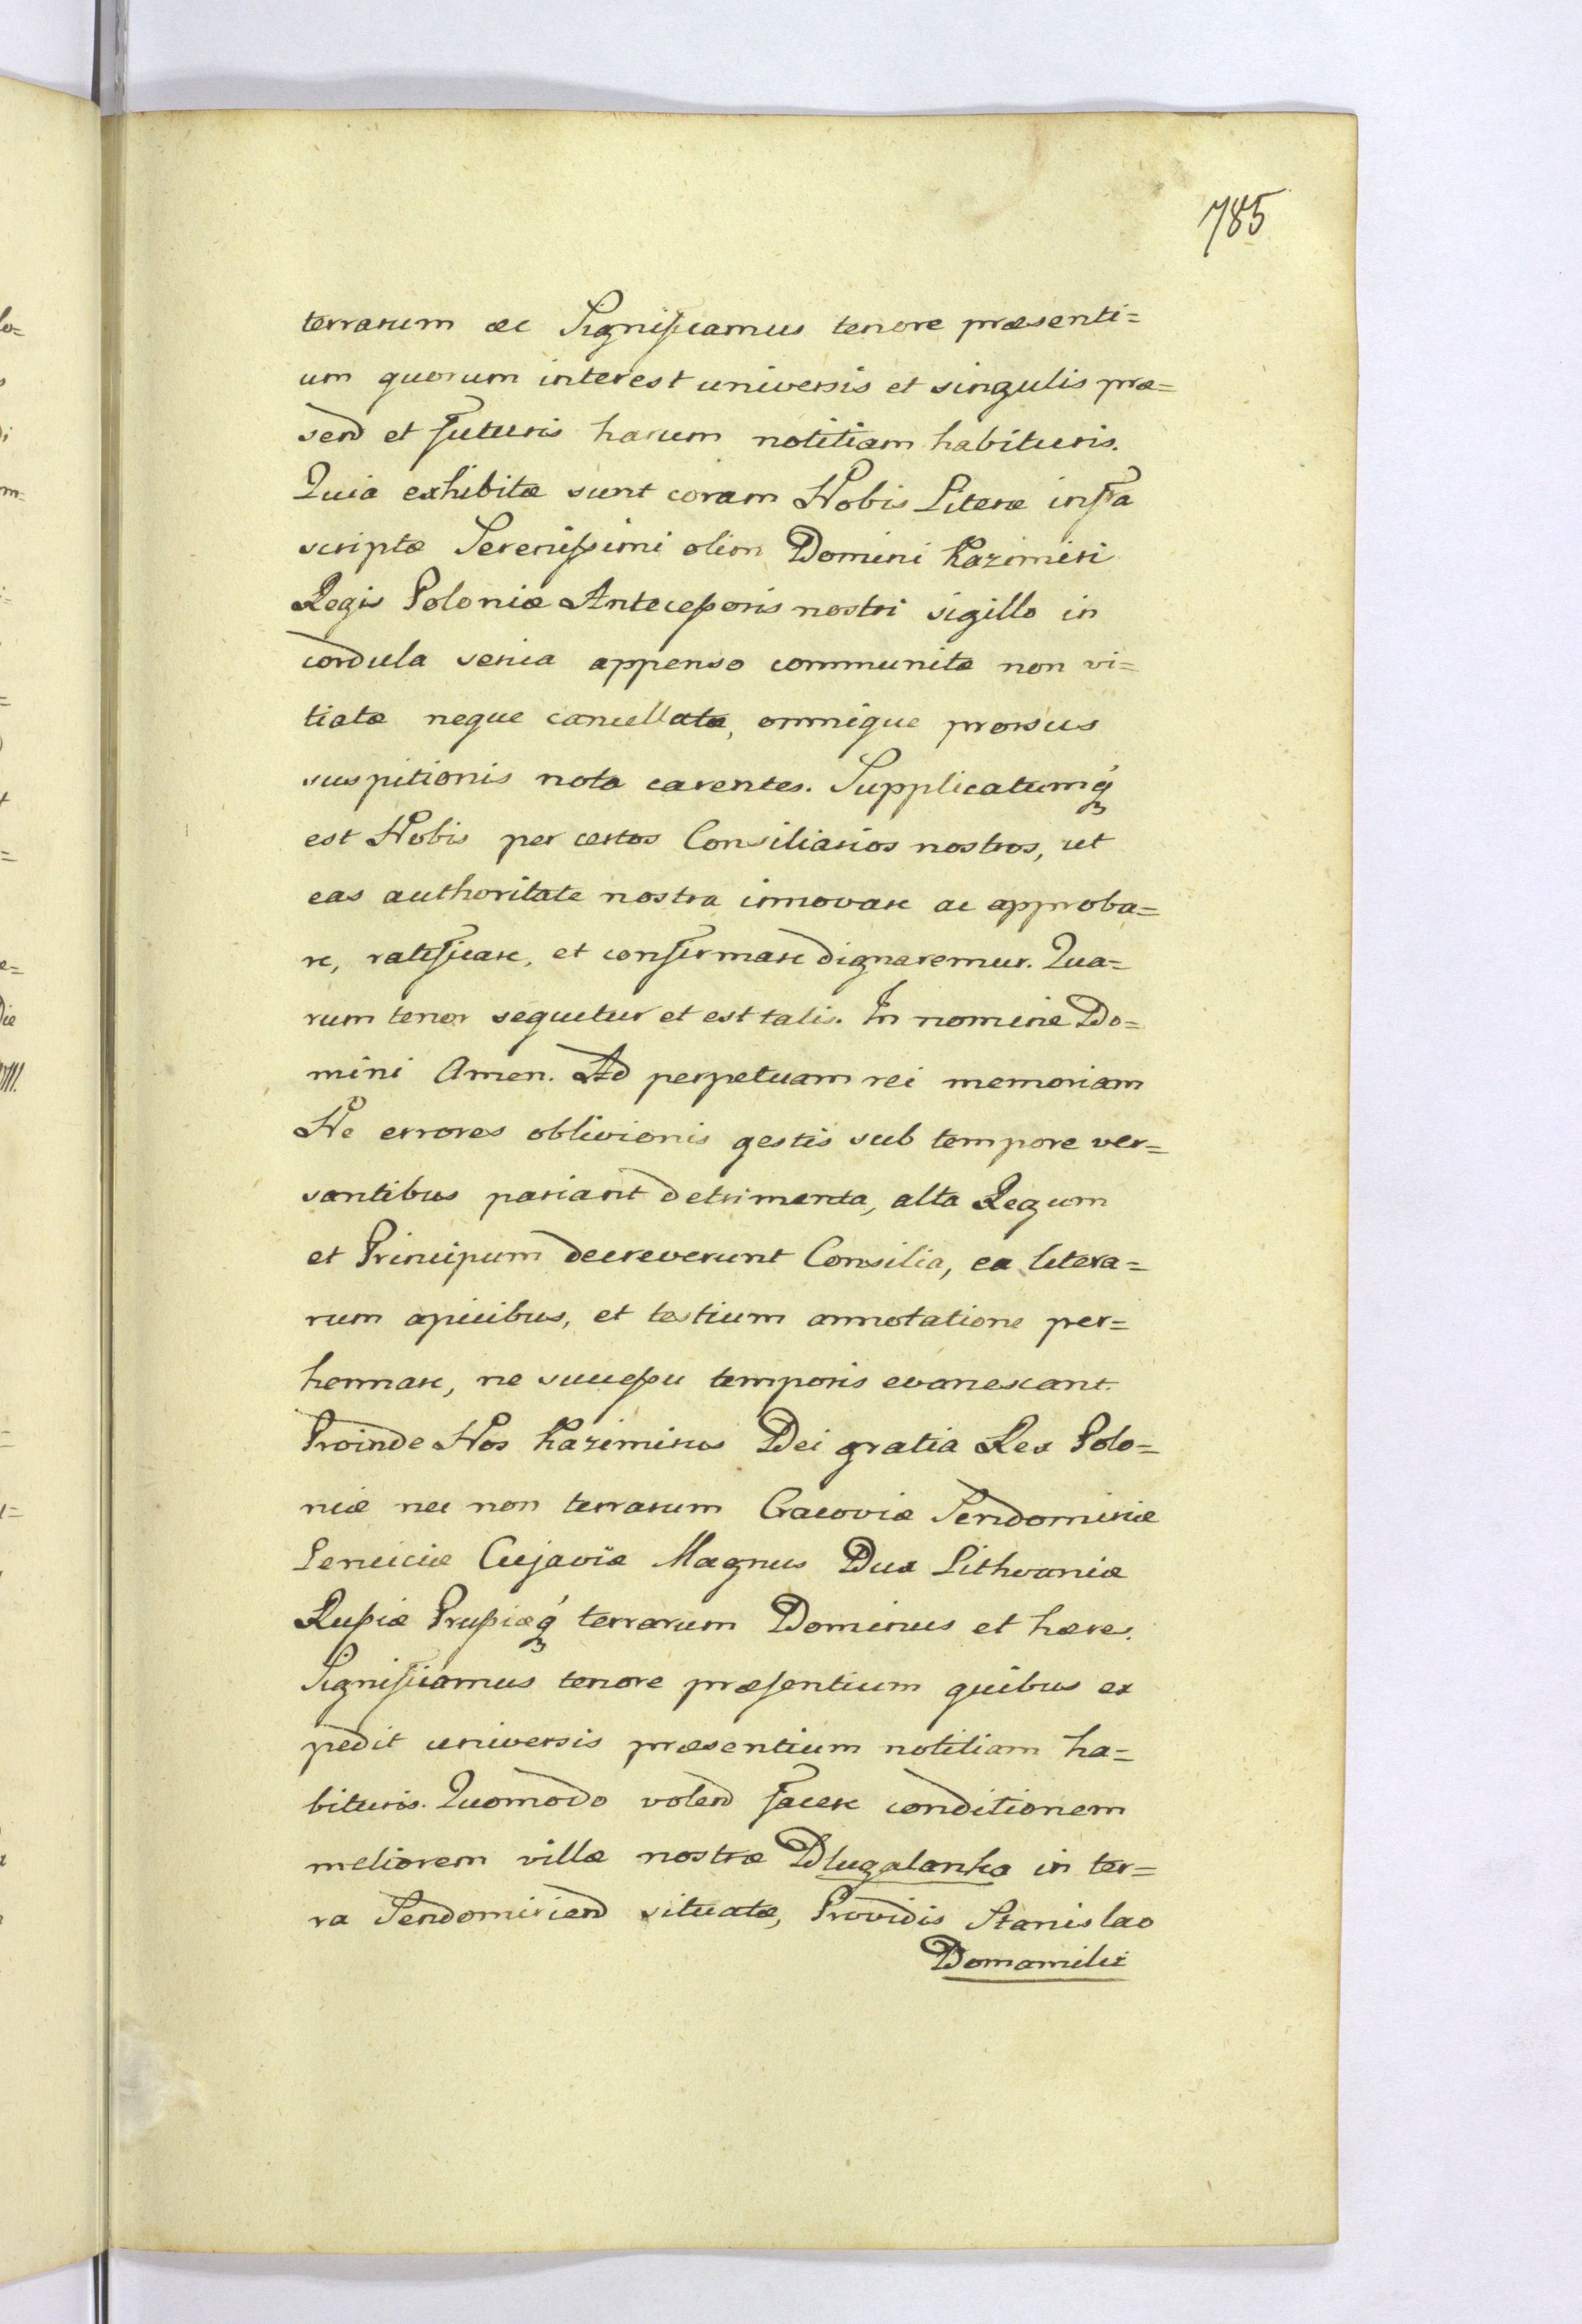 785
terrarum ac Significamus tenore præsenti=
um quorum interest universis et singulis præ=
send et futuris harum notitiam habituris.
Quia exhibitæ sunt coram Nobis Literæ infra
scriptæ Sereniſsimi olim Domini Kazimiri
Regis Poloniæ Anteceſsoris nostri sigillo in
cordula serica appenso communitæ non vi=
tiatæ neque cancellatæ, omnique prorsus
suspitionis nota carentes. Supplicatumq́
est Nobis per certos Consiliarios nostros, ut
eas authoritate nostra innovare ac approba=
re, ratificare, et confirmare dignaremur. Qua=
rum tenor sequitur et est talis. In nomine Do=
mini Amen. Ad perpetuam rei memoriam
Ne errores oblivionis gestis sub tempore ver=
santibus pariant detrimenta, alta Regum
et Principum decreverunt Consilia, ea litera=
rum apicibus, et testium annotatione per=
hennare, ne succeſsu temporis evanescant.
Proinde Nos Kazimirus Dei gratia Rex Polo=
niæ nec non terrarum Cracoviæ Sendomiriæ
Lenciciæ Cujaviæ Magnus Dux Lithvaniæ
Ruſsiæ Pruſsiæq́ terrarum Dominus et hæres.
Significamus tenore præſentium quibus ex
pedit universis præsentium notitiam ha=
bituris. Quomodo volend facere conditionem
meliorem villæ nostræ Dlugalanka in ter=
ra Sendomiriend situatæ, Providis Stanislao
Domamilic